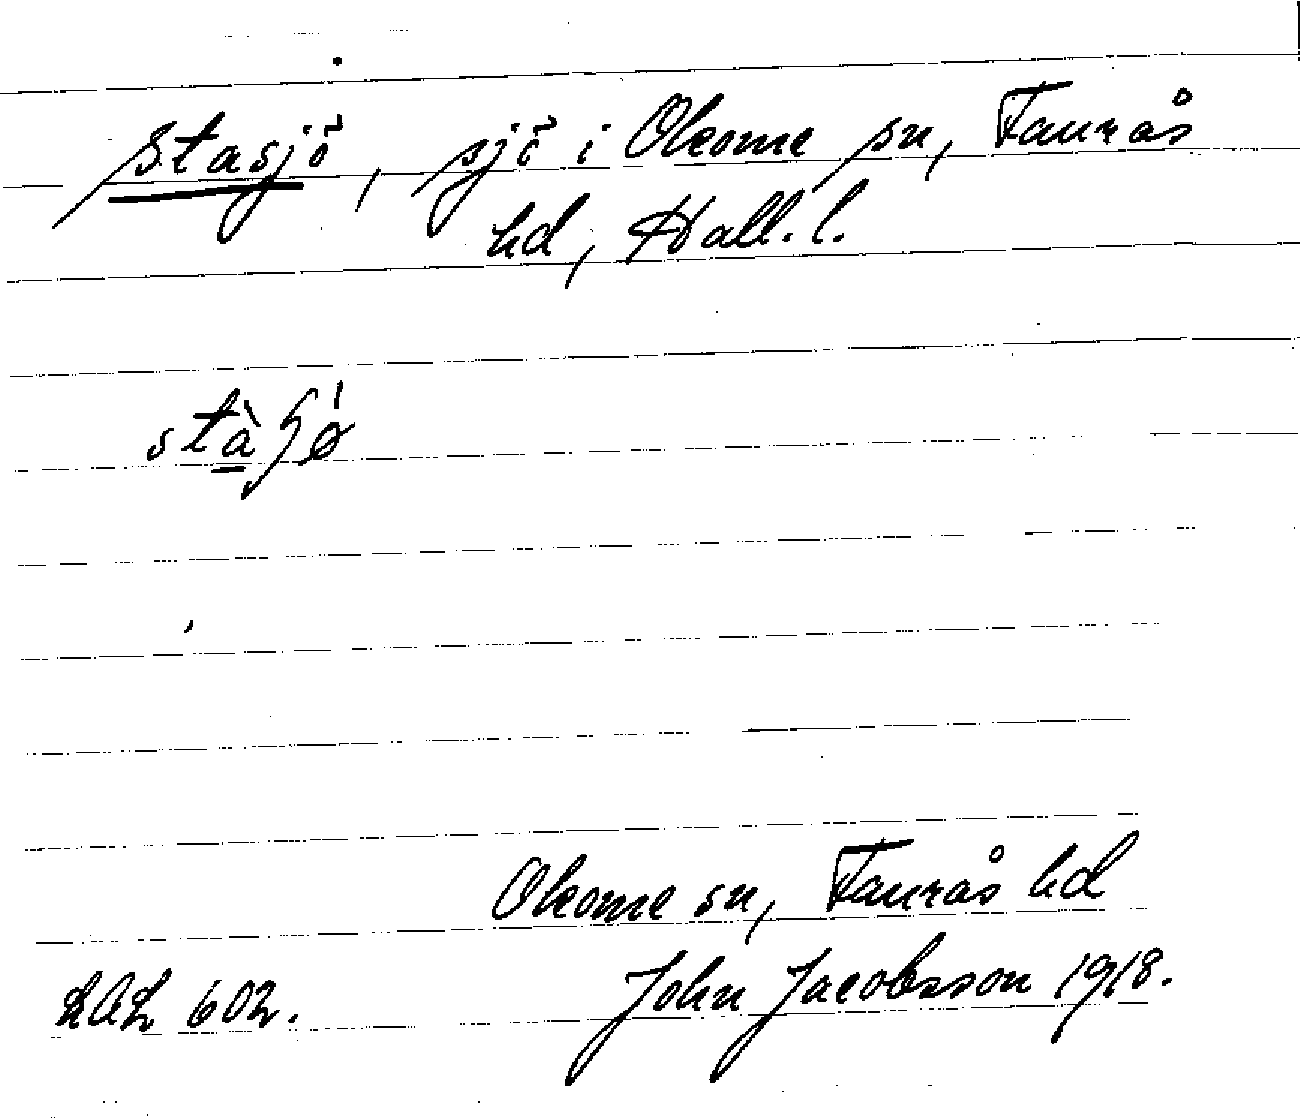 Stasjö, sjö i Okome sn, Faurås
hd, Hall. l.
Okome sn, Faurås hd
LAL 602.
John Jacobsson 1918.